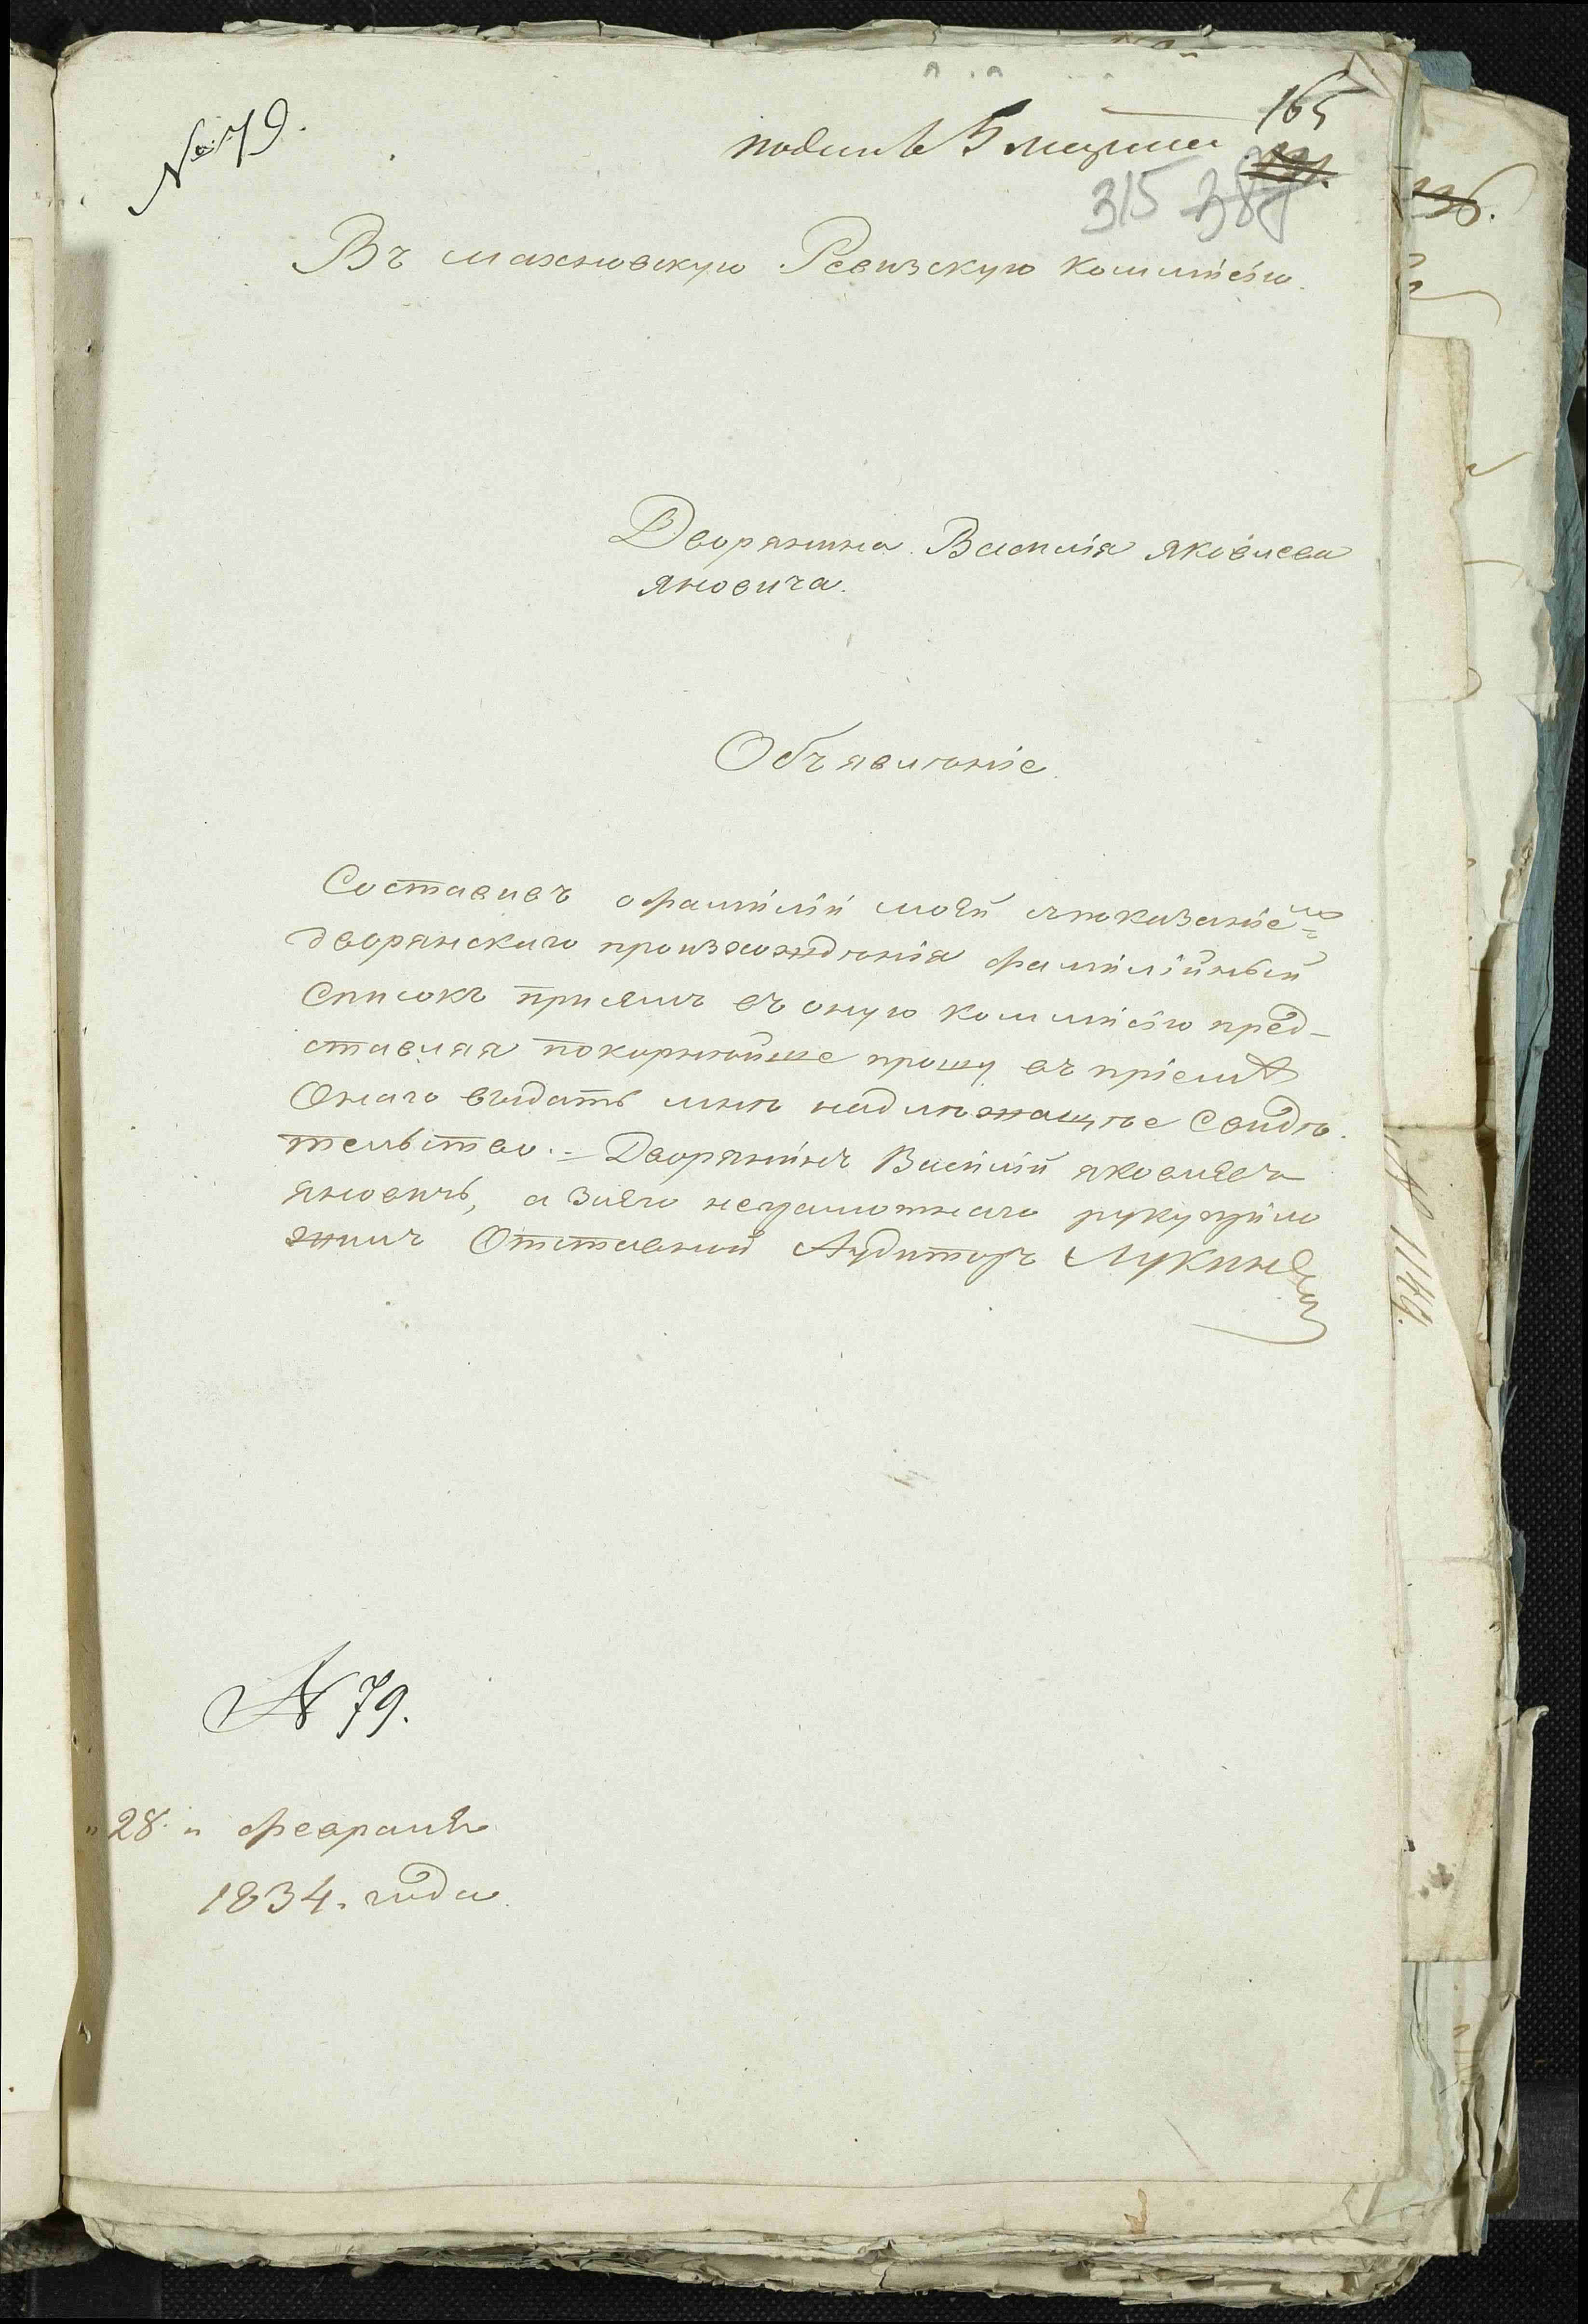 № 79.
165
подан 5 марта
315 387
Въ махновскую Ревизскую Коммисію.
Дворянина Василія Яковлева
Яновича.
Объявленіе
Составивъ о фамиліи моей съ показаніемъ
дворянскаго произхожденія фамилійный
Списокъ при семъ въ оную Коммисію пред-
ставляя покорнейше прошу въ пріемѣ
Онаго выдать мнѣ надлежащее Свидѣ-
тельство. - Дворянинъ Василій Яковлевъ
Яновичъ, а за его неграмотнаго руку прило
жилъ Отставной Аудиторъ Лукин
№ 79.
"28" февраля
1834. года
136.
№ 1144.